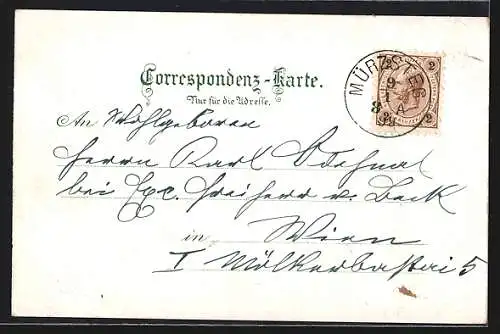 Correspondenz-Karte.
Nur für die Adresse.
MÜRZSTEG
2 2
2 2
An Wohlgeboren
Herrn Karl
bei Exc. Freiherr v. Beck
in Wien
I Mölkerbastei 5